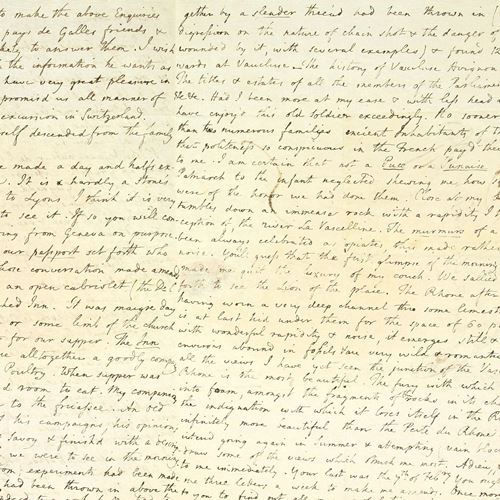 to make the above Enquiries
pays de Galles friends &
likely to answer them. I wish
the information he wants as
have very great pleasure in
promised us all manner of
excursion in Switzerland
self descended from the family
we made a day and half's ex
It is hardly a Stones
to Lyons. I think it is very
to see it. If so you will con
ing from Geneva on purpose
our passport set forth who
whose conversation made amends
an open cabriolet (the Del
ched Inn. It was maigre day
or some limb of the church
for our supper. The Inn
were alltogether a goodly comp
Poultry. When supper was
d room to eat. My companion
to the fricassee. An old
his campaigns, his opinion
Savoy & finish'd with a
we were to see in the morning
room; experiments had been made
had been thrown in above the
gether by a slender thread had been thrown in
digression on the nature of chain shot & the danger of
wounded by it, with several examples) & found 12
wards at Vaucluse. The history of Vaucluse Avignon
The titles & estates of all the members of the Parliament
&c. Had I been more at my ease & with less head
have enjoy'd this old soldier exceedingly. No sooner
than numerous families ancient Inhabitants of
that politeness so conspicuous in the French pay'd their
to me. I am certain that not a Puce or a Punaise
Patriarch to the infant neglected shewing me how
were of the honor we had done them. Close at my
tumbles down an immense rock with a rapidity
ception of the river La Vascelline. The murmurs of a
been always celebrated as opiates, this made rather
noise. You'll guess that the first glimpse of the morning
made me quit the luxury of my couch. We sallied
forth to see the Lion of the place. The Rhone after
having worn a very deep channel thro some limestone
is at last hid under them for the space of 60 p
with wonderful rapidity & noise it emerges still &
environs abound in fossils & are very wild & romantic
all the views I have yet seen the junction of the Vas
Rhone is the most beautiful. The fury with which
into foam, amongst the fragments of rocks in its ch
the indignation with which it loses itself in the Rh
infinitely more beautiful than the Perte du Rhone
intend going again in Summer & attempting
draw some of the views which struck me most. Adieu,
to me immediately. Your last was the 7th of Feb. You
me three letters a week to make me amends.
to you to find out all